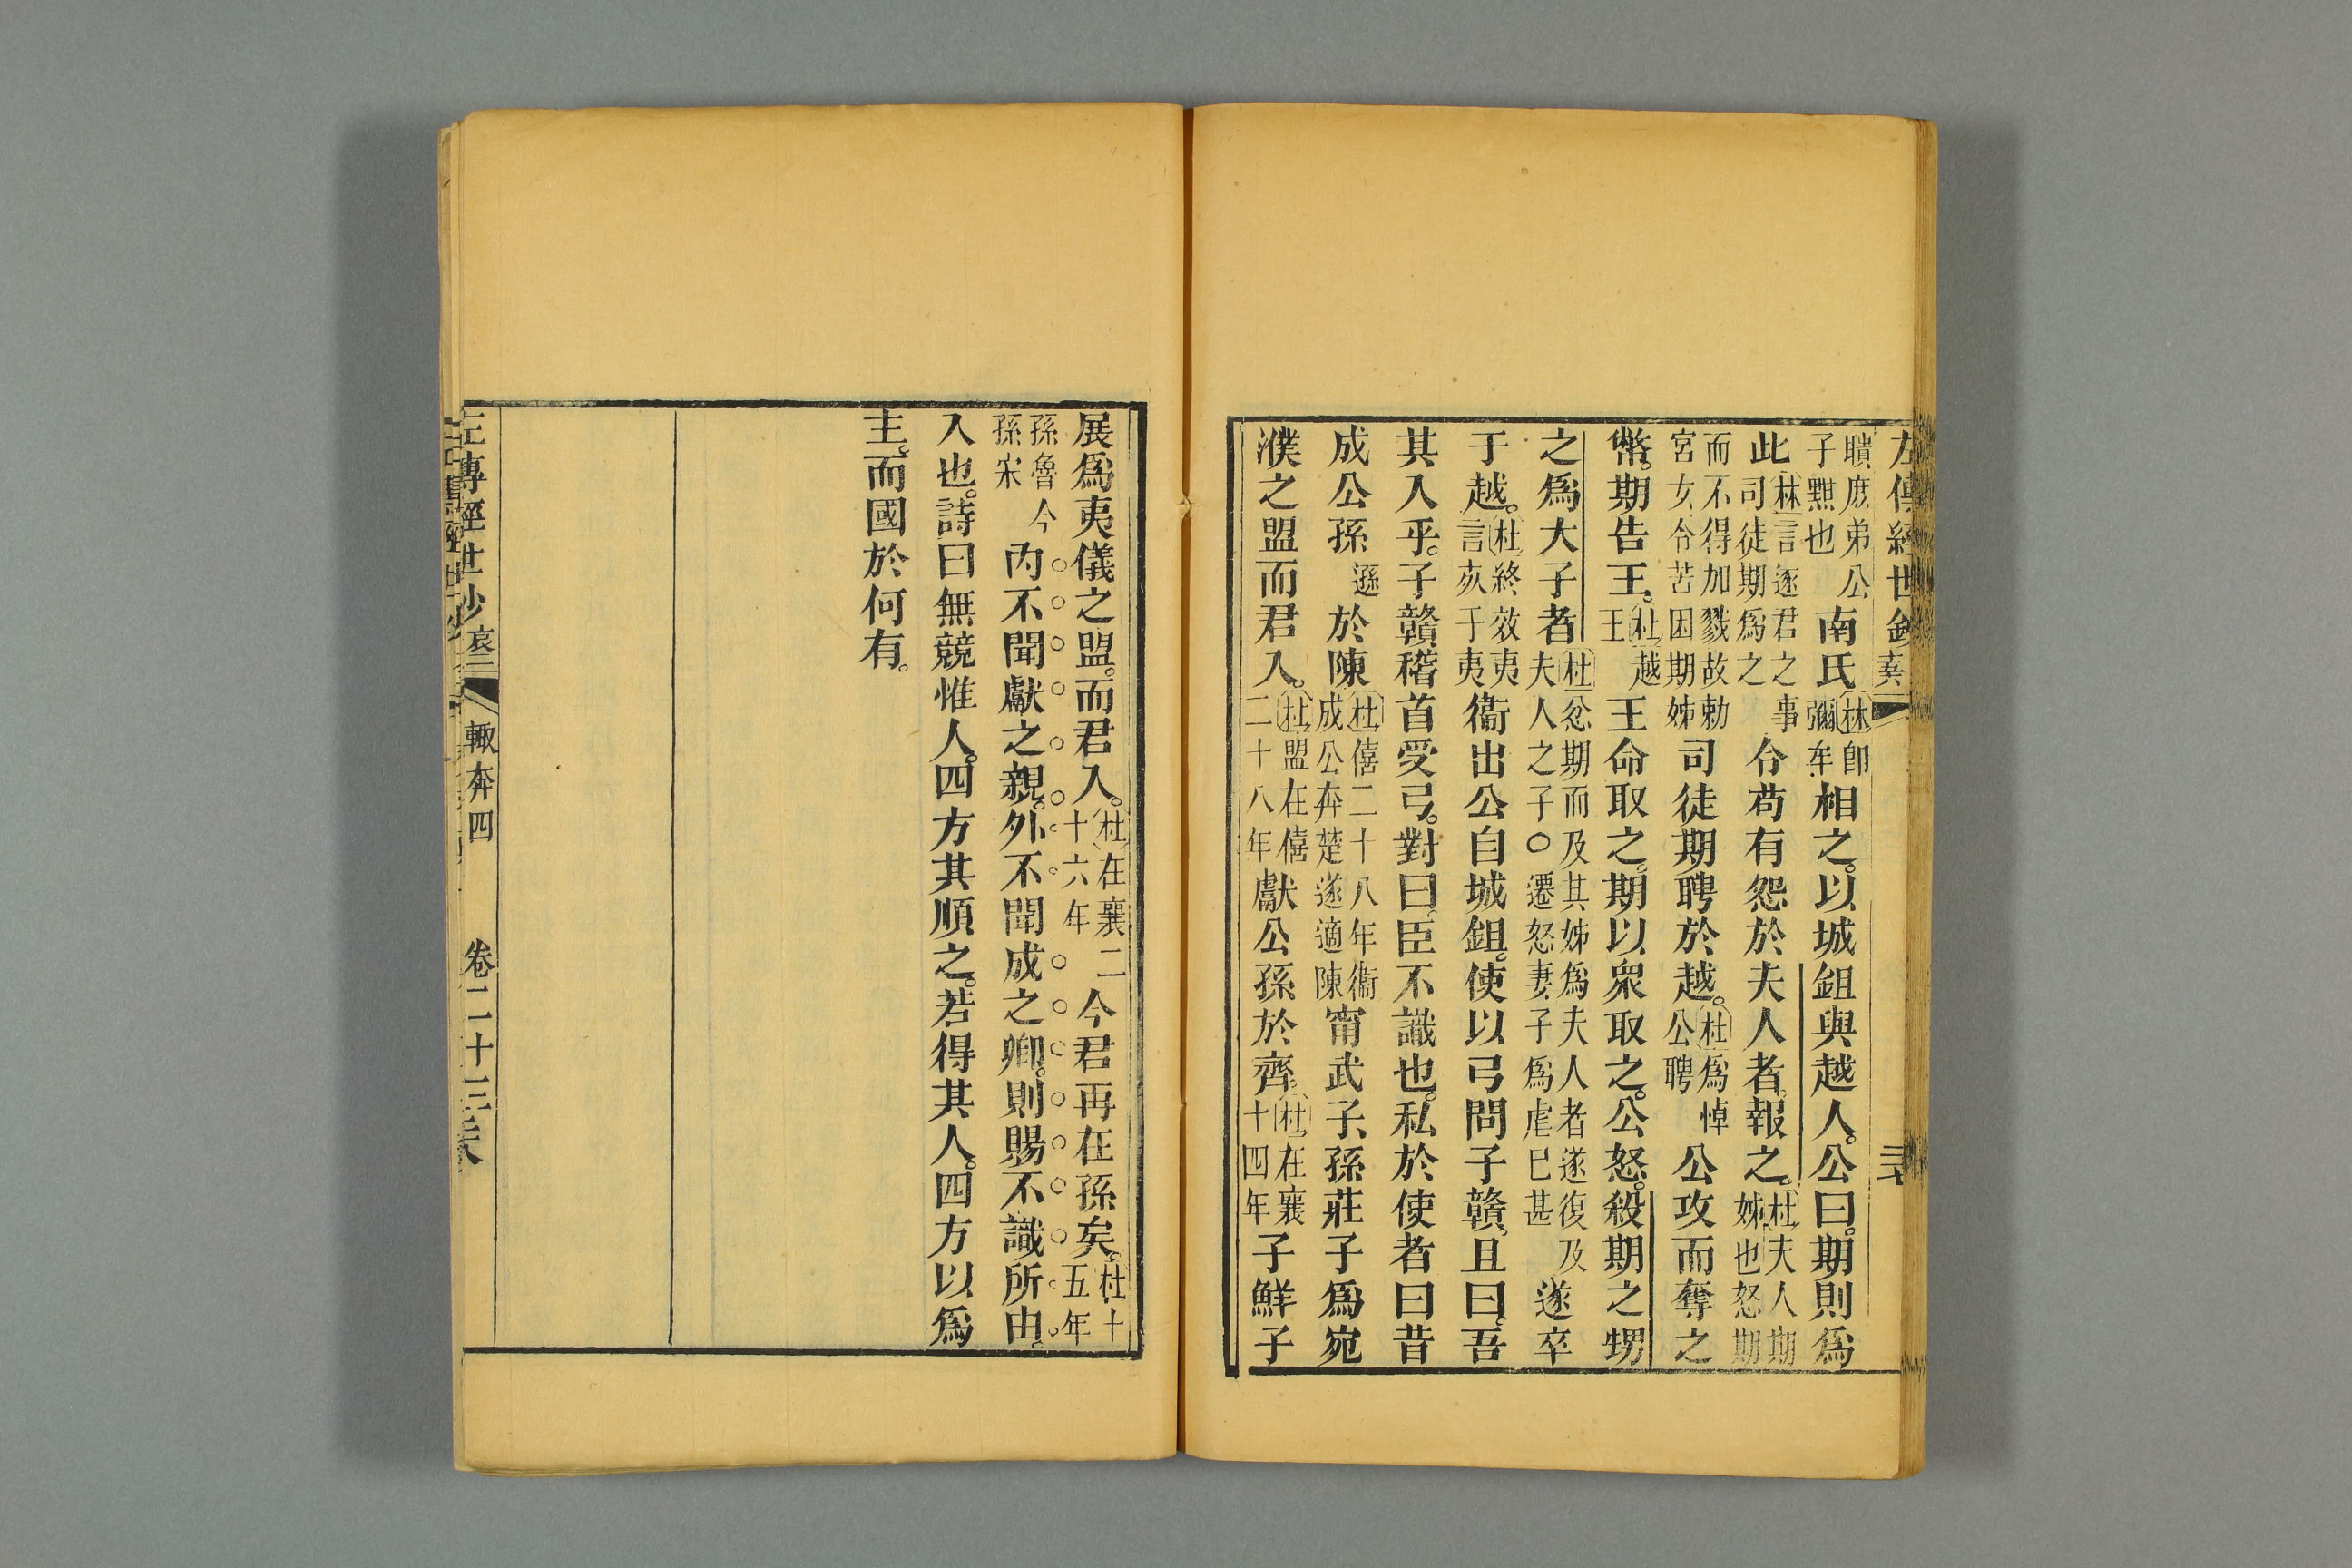 左傳經世鈔
聵庶弟公子黚也南氏林卽彌牟相之。以城鉏與越人。公曰。期則爲
此林言逐君之事司徒期爲之令苟有怨於夫人者。報之。杜夫人期姊也怒期
而不得加戮故勅宮女令苦困期姊司徒期聘於越。杜爲悼公聘公攻而奪之
幣。期告王。杜越王王命取之。期以衆取之。公怒。殺期之甥
之爲大子者杜忿期而及其姊爲夫人者遂復及夫人之子〇遷怒妻子爲虐已甚遂卒
于越。杜終效夷言㱾于夷衞出公自城鉏。使以弓問子贛。且曰。吾
其入乎。子贛稽首受弓。對曰。臣不識也。私於使者曰昔
成公孫遜於陳杜僖二十八年衞成公奔楚遂適陳甯武子、孫莊子爲宛
濮之盟而君入。杜盟在僖二十八年獻公孫於齊。杜在襄十四年子鮮子
展爲夷儀之盟。而君入。杜在襄二十六年今君再在孫矣。杜十五年
孫魯今孫宋內不聞獻之親。外不聞成之卿。則賜不識所由。
入也。詩曰無競惟人。四方其順之。若得其人。四方以爲
主。而國於何有。
左傳經世鈔 哀 輒奔四 卷二十三